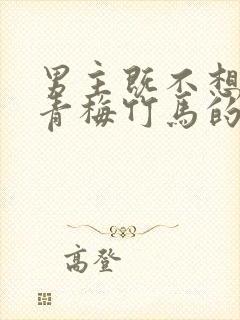 男主既不想
青梅竹马的
高登